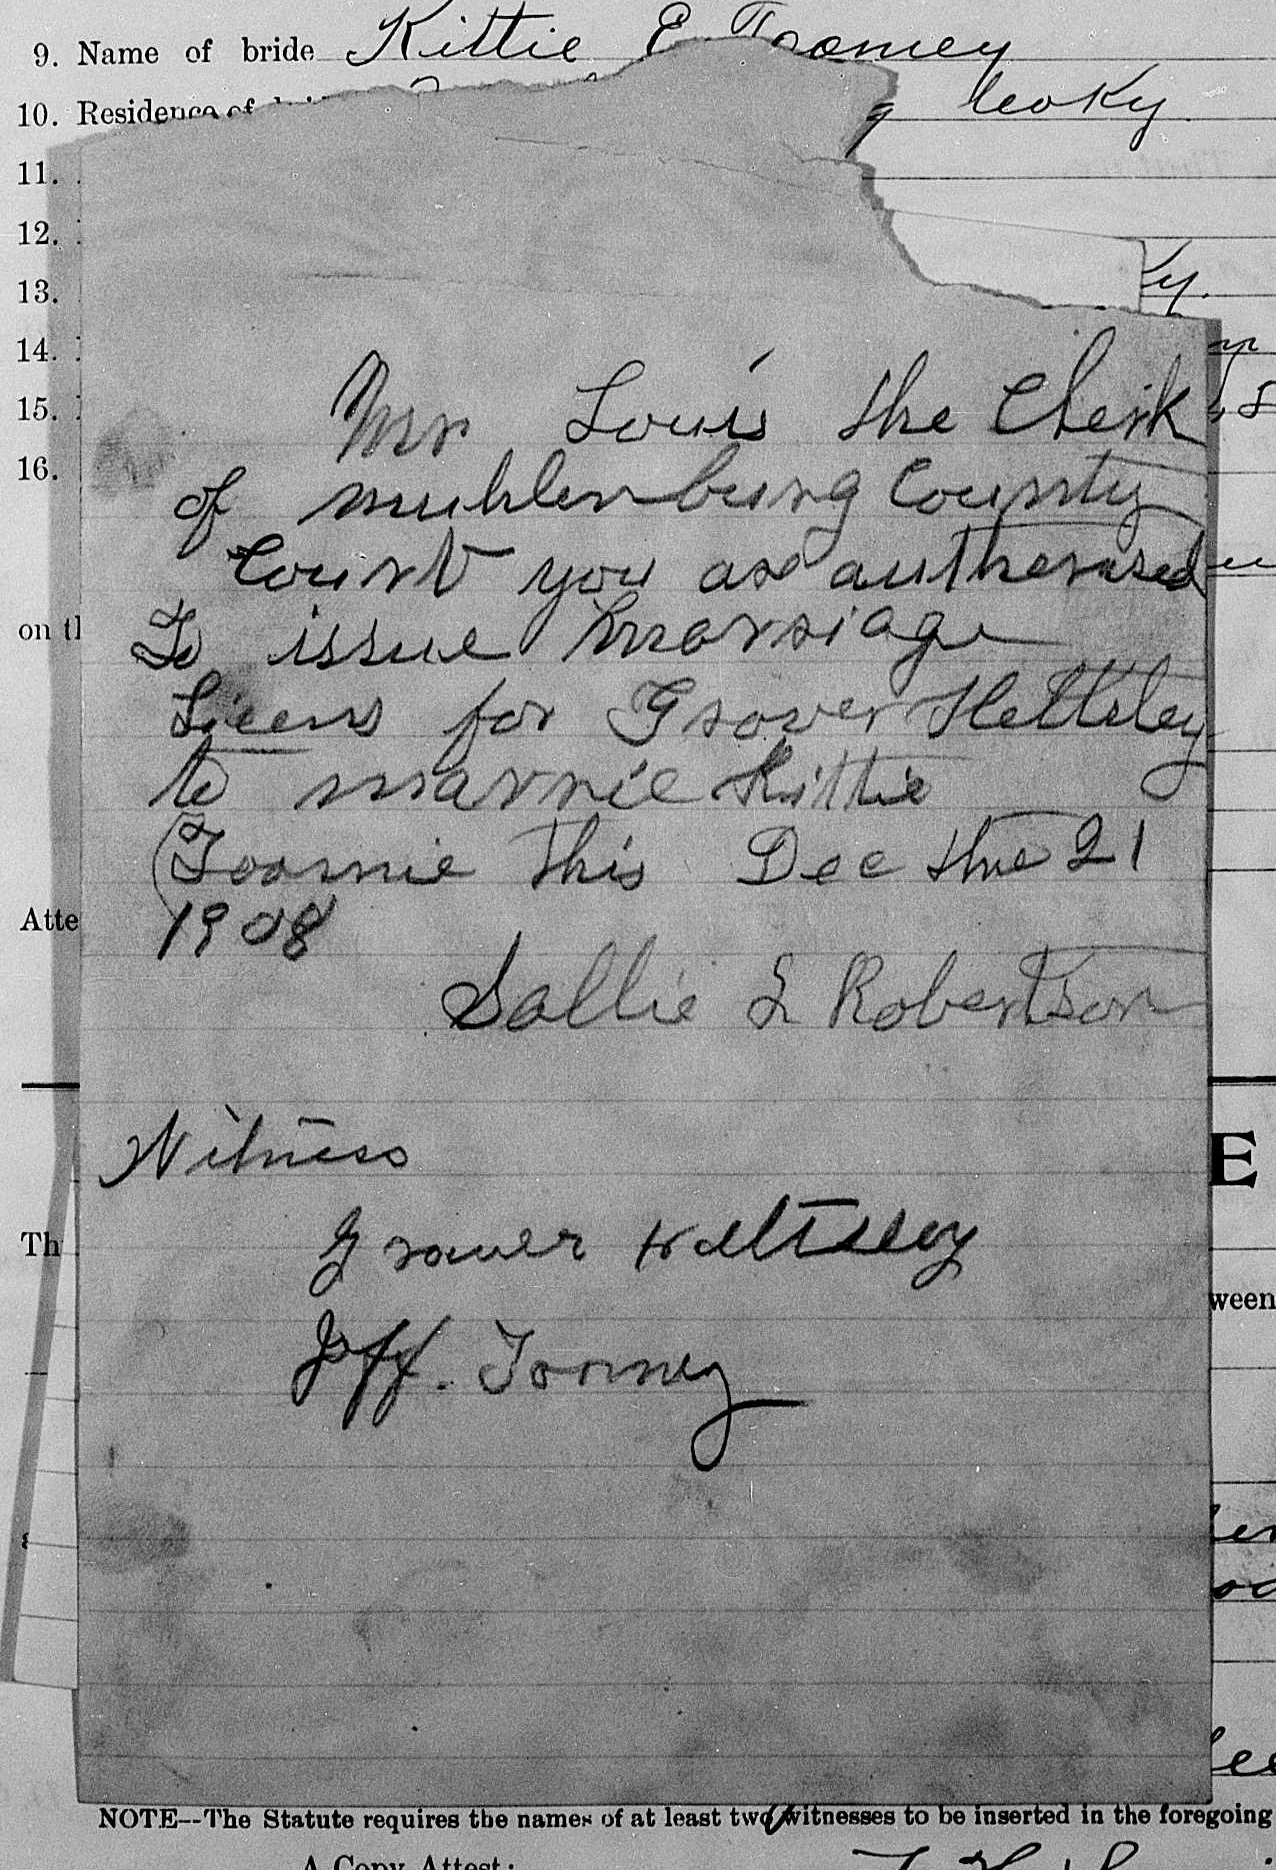 9. Name of bride Kittie E Toomey
10. Residence of Co Ky
11.
12.
13. Ky.
14.
15.
16.
Mr Louis the Clerk
of Muhlenburg County
Court you ar autherised
on tl
To issue marriage
Licens for Grover Heltsley
to marrie Kittie
Toomie this Dec the 21
Atte
1908
Sallie E Robertson
Witness
E
Grover Heltsley
Th
ween
Jeff. Toomey
NOTE--The Statute requires the names of at least two witnesses to be inserted in the foregoing
A Copy Attest: